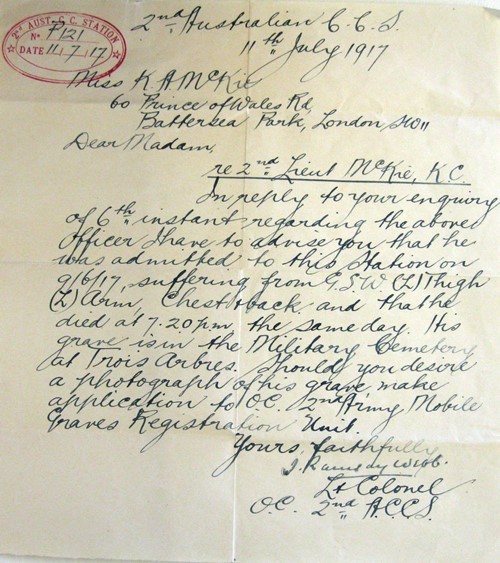 2nd AUST. C. C. STATION
No P121
DATE 11/7/17
2nd Australian C.C.S.
11th July 1917
Miss K A McKie
60 Prince of Wales Rd,
Battersea Park, London, SW11
Dear Madam,
re 2nd Lieut McKie, K C
In reply to your enquiry
of 6th instant regarding the above
Officer I have to advise you that he
was admitted to this Station on
9/6/17, suffering from G.S.W. (L) Thigh
(L) Arm, Chest & back and that he
died at 7.20 pm, the same day. His
grave is in the Military Cemetery
at Trois Arbres. Should you desire
a photograph of his grave, make
application to O.C. 2nd Army Mobile
Graves Registration Unit.
Yours faithfully
J. Ramsay Webb.
Lt Colonel
O.C. 2nd A.C.C.S.